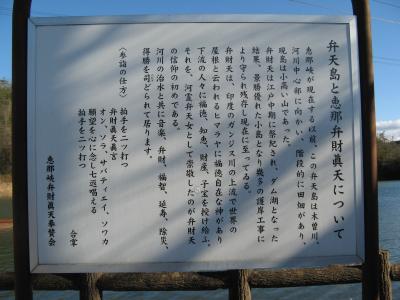 弁天島と恵那弁財眞天について
恵那峡が現在する以前、この弁天島は木曽川、
河川中心部に向かい、階段的に田畑があり、
現島は小高い山であった。
弁財天は江戸中期に祭紀され、ダム湖となった
結果、景勝優れた小島となり幾多の護岸工事に
より守られ残存し現在に至ってゐる。
弁財天は、印度のガンジス川の上流で世界の
屋根と云われるヒマラヤに福徳自在な神があり
下流の人々に福徳、知恵、財産、子宝を授け給ふ、
それを、河宣弁天女として崇敬したのが弁財天
の信仰の初めである。
河川の治水と共に音楽、弁財、福智、延寿、除災、
得勝を司どられて居ります。
〈参詣の仕方〉
拍手を二ツ打つ
弁財眞天眞言
オン、ソラ、サバティエイ、ソワカ
願望を心に念じ七返唱える
拍手を二ツ打つ
合掌
恵那峡弁財眞天奉賛会